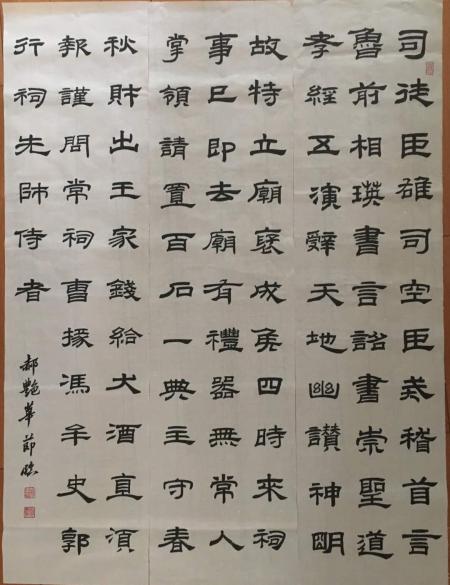 司徒臣雄司空臣戒稽首言
魯前相瑛書言詔書崇聖道
孝經五演辭天地幽讚神明
故特立廟褒成侯四時來祠
事已即去廟有禮器無常人
掌領請置百石一典主守春
秋財出王家錢給犬酒直須
報謹問常祠曹掾馮牟史郭
行祠先師侍者
郝艷華節臨